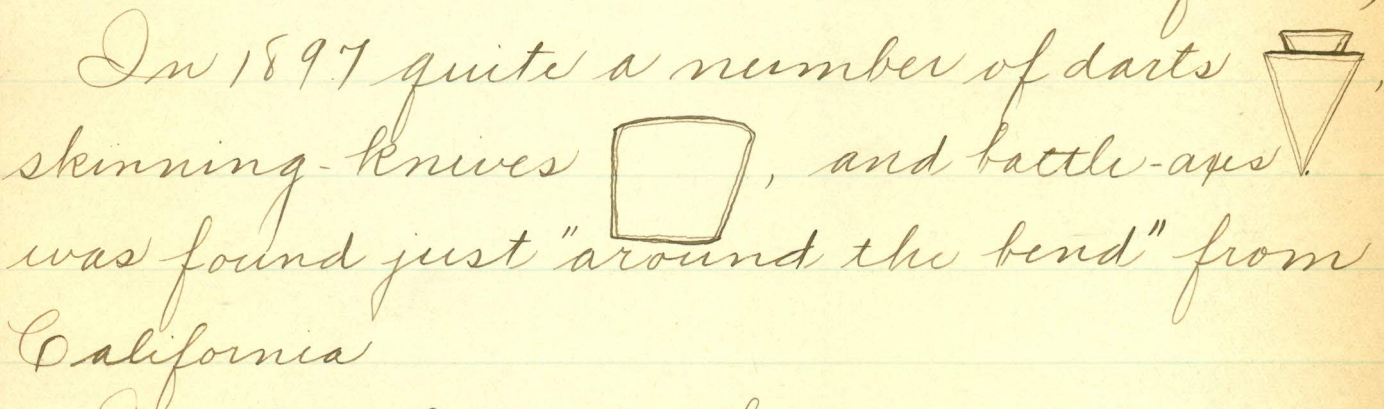 In 1897 quite a number of darts ,
skinning-knives , and battle-axes
was found just "around the bend" from
California